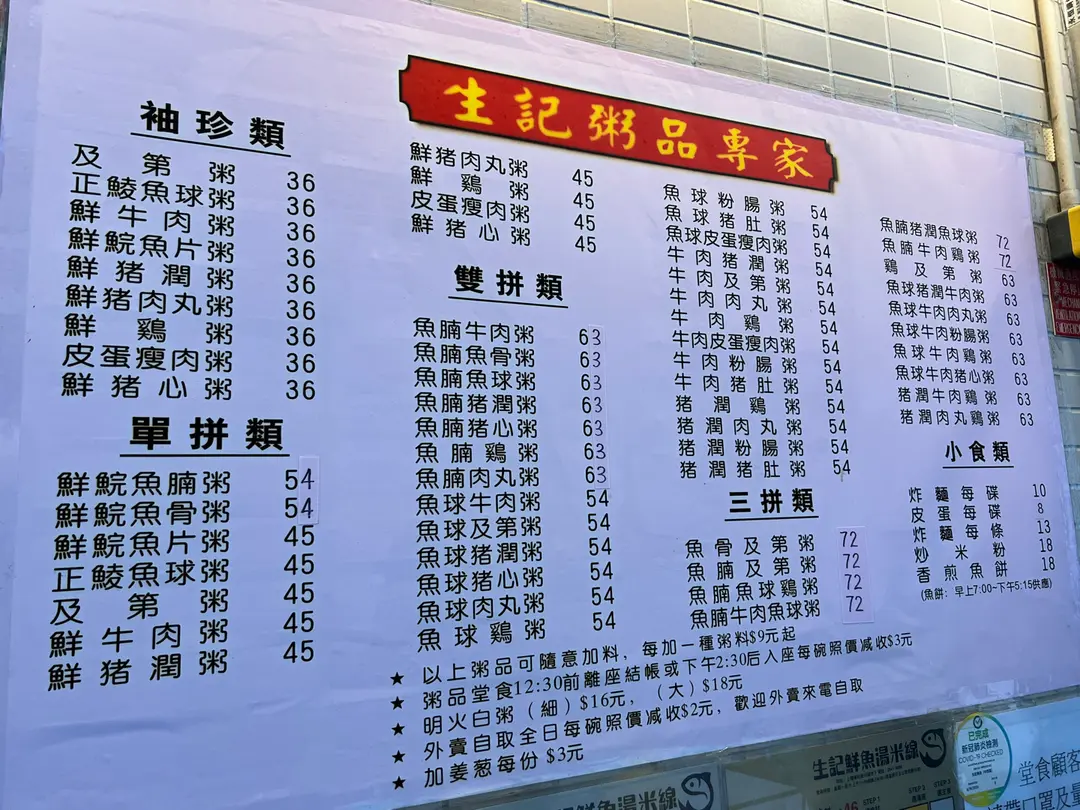 生記粥品專家
袖珍類
及第粥 36
正鯪魚球粥 36
鮮牛肉粥 36
鮮鯇魚片粥 36
鮮猪潤粥 36
鮮猪肉丸粥 36
鮮鷄粥 36
皮蛋瘦肉粥 36
鮮猪心粥 36
單拼類
鮮鯇魚腩粥 54
鮮鯇魚骨粥 54
鮮鯇魚片粥 45
正鯪魚球粥 45
及第粥 45
鮮牛肉粥 45
鮮猪潤粥 45
鮮猪肉丸粥 45
鮮鷄粥 45
皮蛋瘦肉粥 45
鮮猪心粥 45
雙拼類
魚腩牛肉粥 63
魚腩魚骨粥 63
魚腩魚球粥 63
魚腩猪潤粥 63
魚腩猪心粥 63
魚腩鷄粥 63
魚腩肉丸粥 63
魚球牛肉粥 54
魚球及第粥 54
魚球猪潤粥 54
魚球猪心粥 54
魚球肉丸粥 54
魚球鷄粥 54
魚球粉腸粥 54
魚球猪肚粥 54
魚球皮蛋瘦肉粥 54
牛肉猪潤粥 54
牛肉及第粥 54
牛肉肉丸粥 54
牛肉鷄粥 54
牛肉皮蛋瘦肉粥 54
牛肉粉腸粥 54
牛肉猪肚粥 54
猪潤鷄粥 54
猪潤肉丸粥 54
猪潤粉腸粥 54
猪潤猪肚粥 54
三拼類
魚骨及第粥 72
魚腩及第粥 72
魚腩魚球鷄粥 72
魚腩牛肉魚球粥 72
魚腩猪潤魚球粥 72
魚腩牛肉鷄粥 72
鷄及第粥 63
魚球猪潤牛肉粥 63
魚球牛肉肉丸粥 63
魚球牛肉粉腸粥 63
魚球牛肉鷄粥 63
魚球牛肉猪心粥 63
猪潤牛肉鷄粥 63
猪潤肉丸鷄粥 63
小食類
炸麵每碟 10
皮蛋每碟 8
炸麵每條 13
炒米粉 18
香煎魚餅 18
(魚餅：早上7:00~下午5:15供應)
★ 以上粥品可隨意加料，每加一種粥料$9元起
★ 粥品堂食12:30前離座結帳或下午2:30后入座每碗照價减收$3元
★ 明火白粥（細）$16元，（大）$18元
★ 外賣自取全日每碗照價减收$2元，歡迎外賣來電自取
★ 加姜葱每份 $3元
生記鮮魚湯米線
生記鮮魚湯米線
已完成
新冠肺炎檢測
COVID-19 CHECKED
堂食顧客